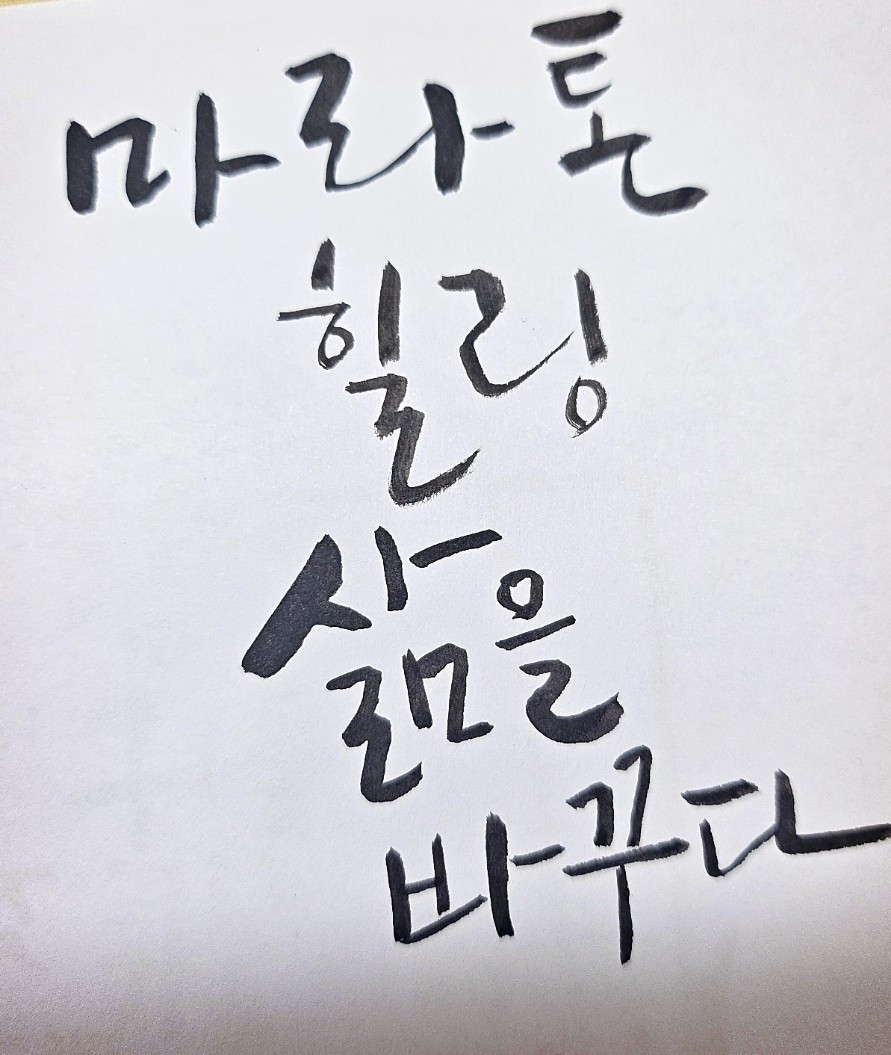 마라톤
힐링
삶을
바꾸다